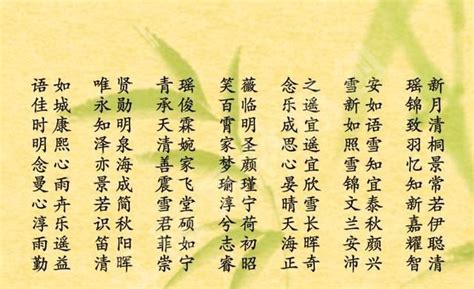 语如 唯贤 青瑶 笑薇 念之 雪安 瑶新
佳城 永勋 承俊 百临 乐遥 新如 锦月
时康 知明 天霖 霄明 成宜 如语 致清
明熙 泽泉 清婉 家圣 思遥 照雪 羽桐
念心 亦海 善家 梦颜 心宜 雪知 忆景
曼雨 景成 震飞 瑜瑾 晏欣 锦宜 知常
心卉 若简 雪堂 淳宁 晴雪 文泰 新若
淳乐 识秋 君硕 兮荷 天长 兰秋 嘉伊
雨遥 笛阳 菲如 志初 海晖 安颜 耀聪
勤益 清晖 崇宁 睿昭 正奇 沛兴 智清